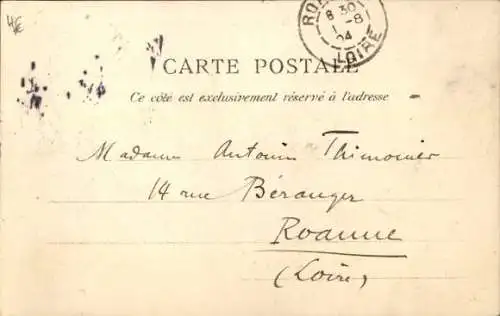 4€
RO
8 30
1 -8
04
LOIRE
CARTE POSTALE
Ce côté est exclusivement réservé à l'adresse
Madame Antonin Thimonier
14 rue Béranger
Roanne
(Loire)